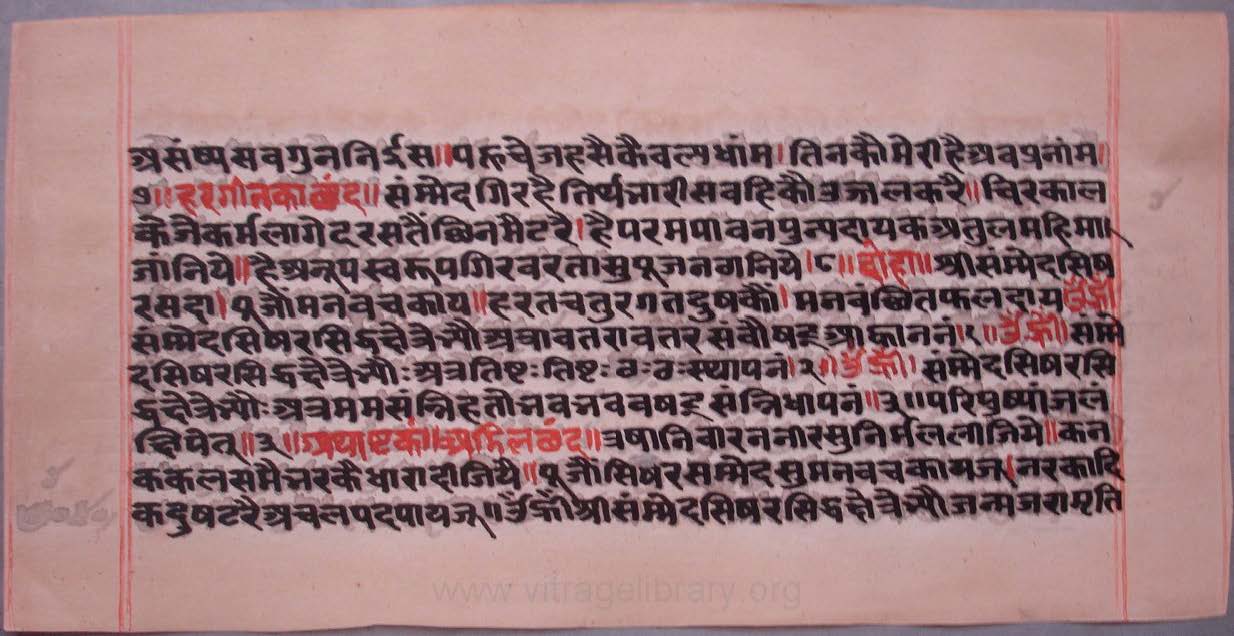 असंष्य सवगुन निर्द्दस॥ पहुचे जह सै कैवल्य धांम। तिनकौ मेरी है अव प्रनांम।
७॥ हरगीतका छंद॥ संम्मेदगिर है तिर्थ भारी सवहि कौ उजल करै॥ चिरकाल
के जे कर्म लागे टरस तैं छिन मै टरै। है परम पावन पुन्य दायक अतुल महिमा।
जांनिये॥ है अनूप स्वरूप गिरवर तासु पूजन गनिये।८॥ दोहा॥ श्री संम्मेद सिष
र सदा। पूजौ मन वच काय॥ हरत चतुरगत दुष कौ। मन वंछित फलदाय ॐ ह्रीं
संम्मेदसिषरसिद्धक्षेत्रेभ्यौ अत्रावतरावतर संवौषट् आह्वाननं।१॥ ॐ ह्रीं। संम्मे
दसिषरसिद्धक्षेत्रेभ्यौः अत्र तिष्टः तिष्टः ठः ठः स्थापनं।२॥ ॐ ह्रीं। संम्मेदसिषरसि
द्धक्षेत्रेभ्यौः अत्र मम संन्निहतो भव भव वषट् संन्निधापनं॥३॥ परिपुष्पांजलं
क्षिपेत्॥३॥ अथाष्टकं॥ अडिल छंद॥ त्रषा निवारन नीर सु निर्मल लीजिये॥ कन
क कलस मै भर कै धारा दीजियै॥ पूजौ सिषर सम्मेद सु मन वच काय जू। नरकादि
क दुष टरै अचल पद पाय जू॥ ॐ ह्रीं श्री संम्मेदसिषरसिद्धक्षेत्रेभ्यौ जन्मजरामृति
www.vitragelibrary.org